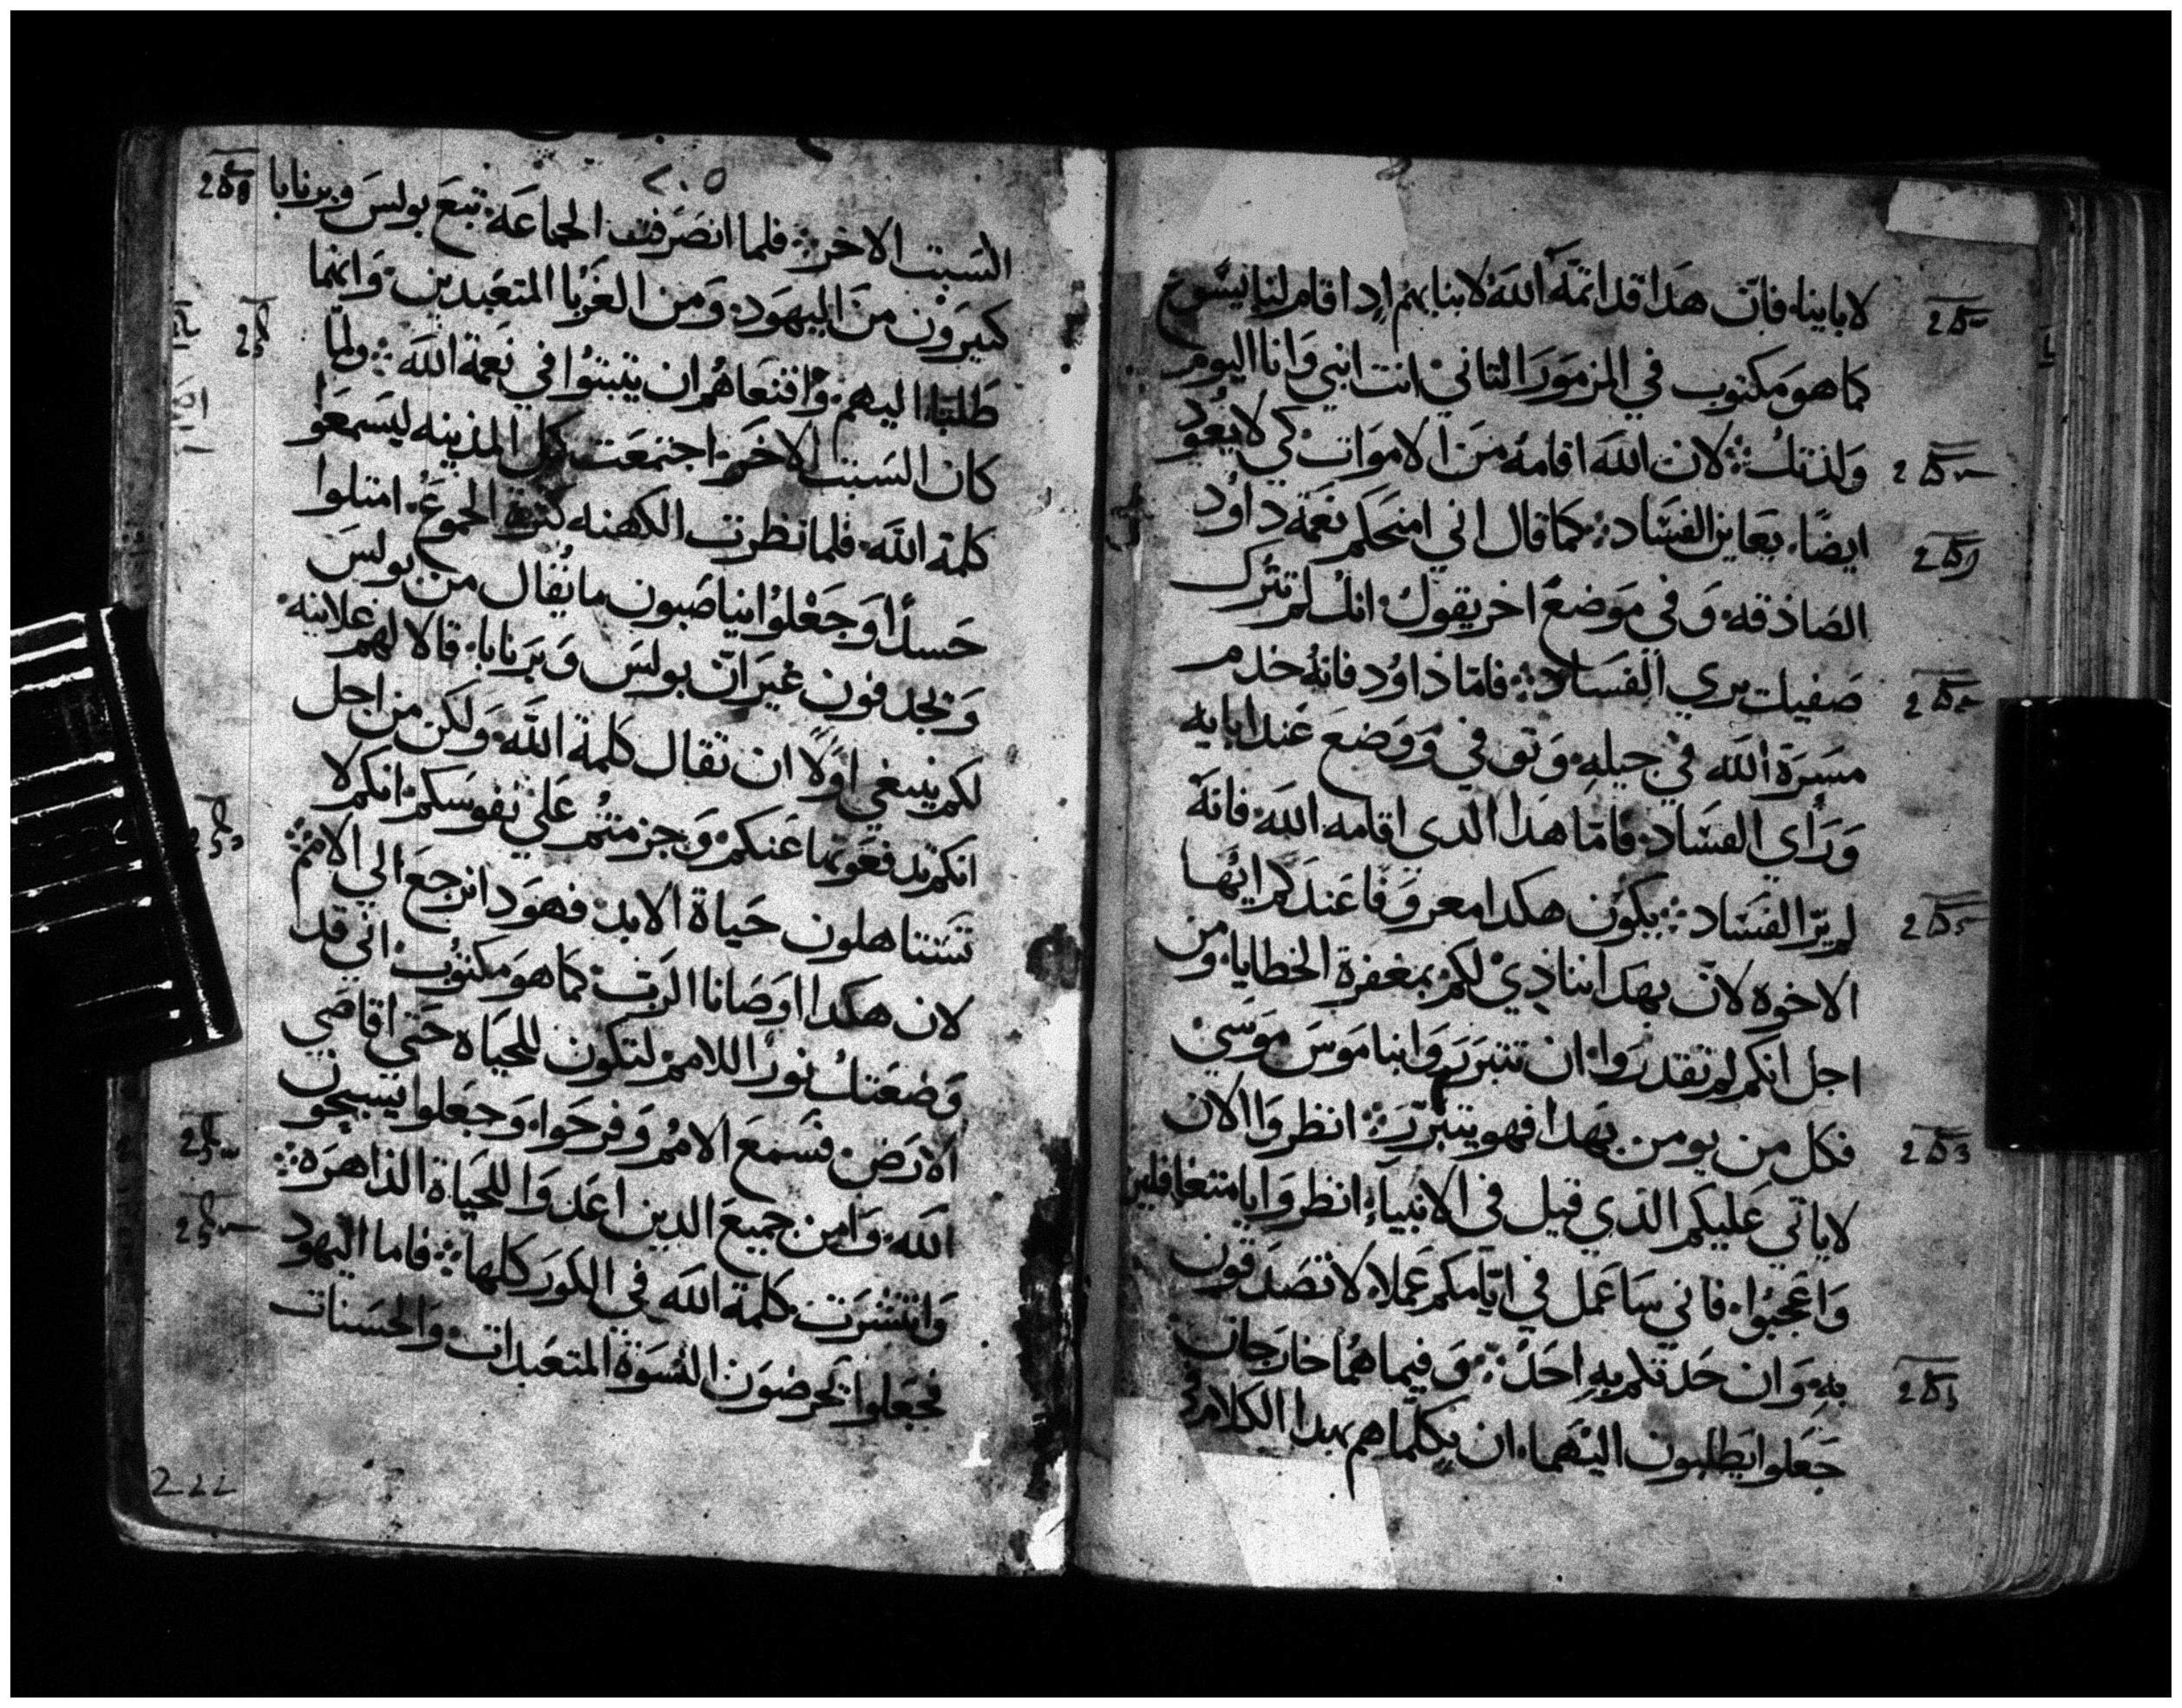 لاباينا، فان هذا قد اتمّه الله لابنايهم اذ اقام لنا يسوع
كما هو مكتوب في المزمور الثاني انت ابني وانا اليوم
ولدتك: لان الله اقامه من الاموات كي لا يعود
ايضا، يعاين الفساد: كما قال اني امنحكم نعمة داود
الصادقه وفي موضع اخر يقول: انك لم تترك
صفيك يري الفساد: فاما داود فانه خدم
مسرة الله في جيله وتوفي ووضع عند ابايه
وراي الفساد فاما هذا الدي اقامه الله فانه
لم يرا الفساد: يكون هكدا معروفا عندكم ايها
الاخوه لان بهدا ننادي لكم بمغفرة الخطايا ومن
اجل انكم لم تقدروا ان تتبرروا بناموس موسي
فكل من يومن بهدا فهو يتبرر: انظروا الان
لا ياتي عليكم الدي قيل في الانبياء انظروا يا متغافلين
واعجبوا، فاني ساعمل في ايامكم عملا لا تصدقون
به وان حدتكم به احد: وفيما هما خارجان
جعلوا يطلبون اليهما، ان يكلماهم بهدا الكلام في
٢٠٥
السبت الاخر: فلما انصرفت الجماعة، تبع بولس وبرنابا
كتيرون من اليهود، ومن الغربا المتعبدين، وانهما
طلبا، اليهم، واقنعاهم ان يتبتوا في نعمة الله: ولما
كان السبت الاخر اجتمعت كل المدينه ليسمعوا
كلمة الله، فلما نظرت الكهنه كترة الجموع، امتلوا
حسدا وجعلوا يناصبون ما يقال من بولس
ويجدفون غير ان بولس وبرنابا، قالا لهم علانيه
لكم ينبغي اولا ان تقال كلمة الله ولكن من اجل
انكم تدفعونها عنكم وجزمتم علي نفوسكم انكم لا
تستاهلون حياة الابد: فهودا نرجع الي الامم:
لان هكدا اوصانا الرب، كما هو مكتوب اني قد
وضعتك نورا للامم لتكون للحياه حتي اقاصي
الارض، فسمع الامم وفرحوا، وجعلوا يسبحون
الله، وامن جميع الدين اعدوا للحياة الداهره:
وانتشرت كلمة الله في الكور كلها: فاما اليهود
فجعلوا يحرضون النسوة المتعبدات والحسنات
222